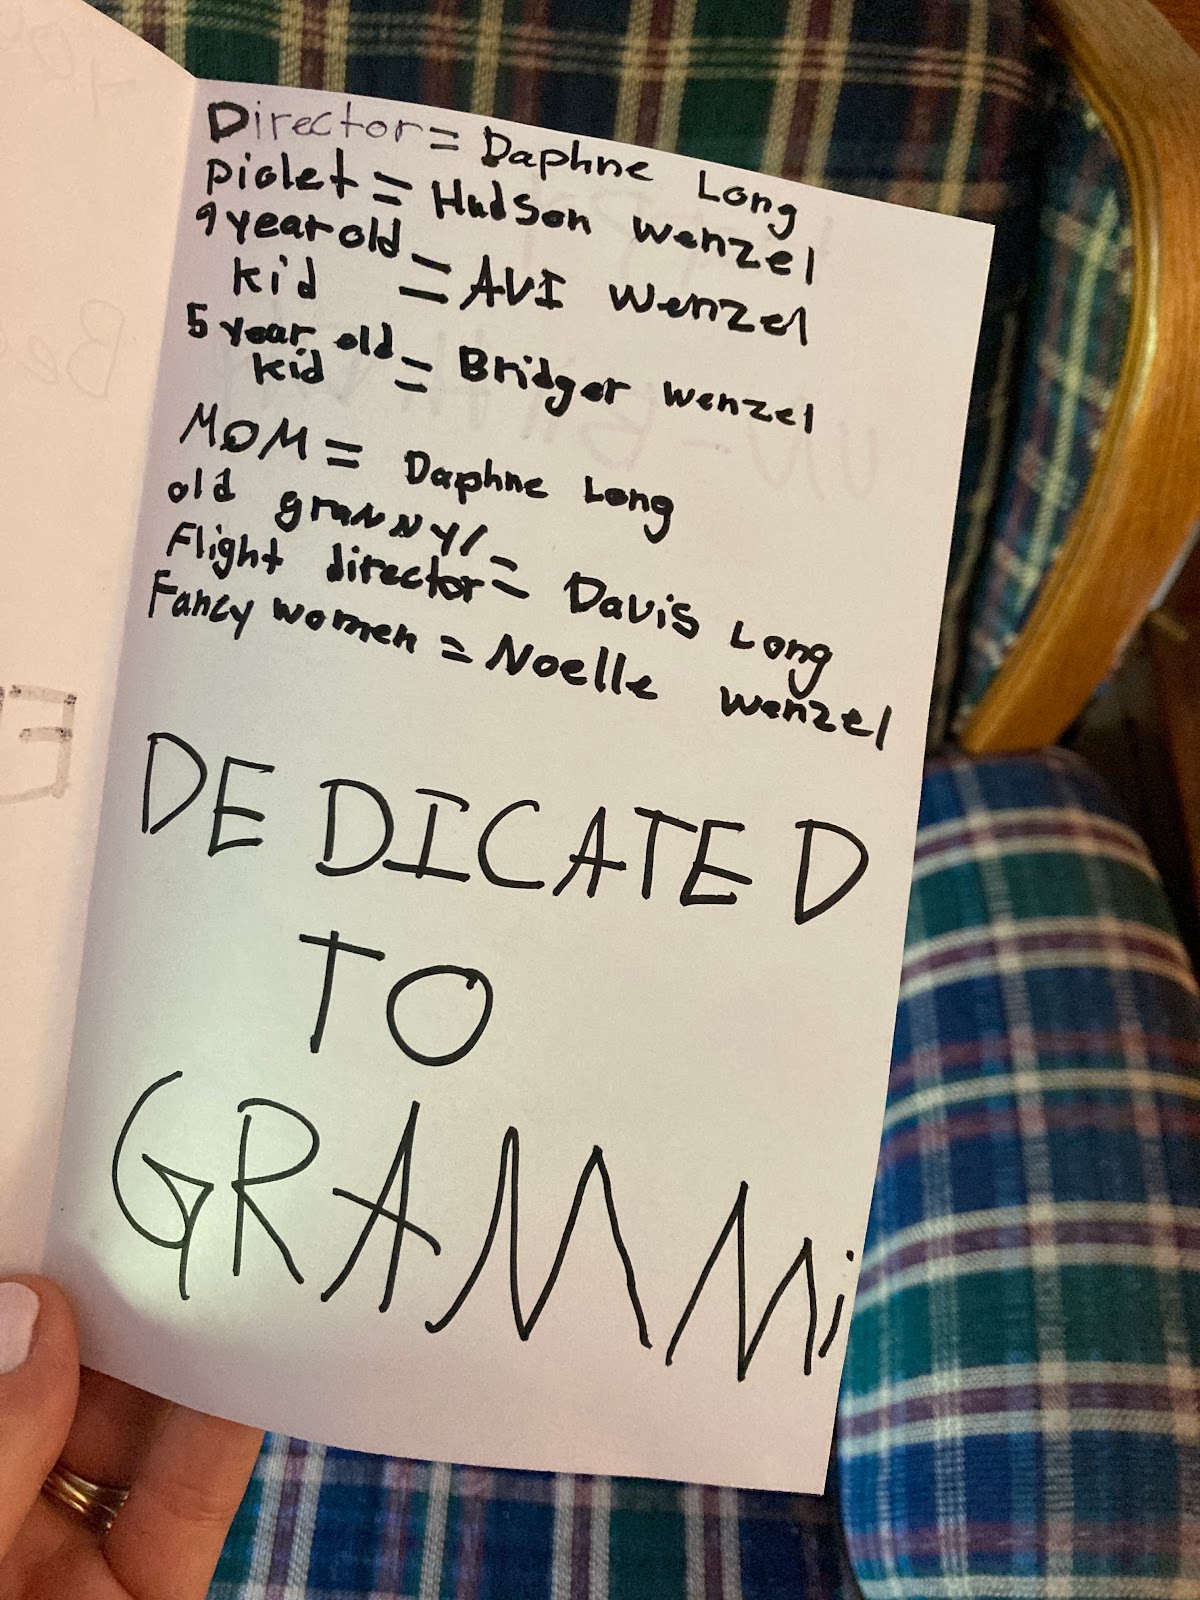 Director = Daphne Long
Piolet = Hudson Wenzel
9 year old
kid = AVI Wenzel
5 year old
kid = Bridger Wenzel
MOM = Daphne Long
old granny/
Flight director = Davis Long
Fancy women = Noelle Wenzel
DEDICATED
TO
GRAMMi